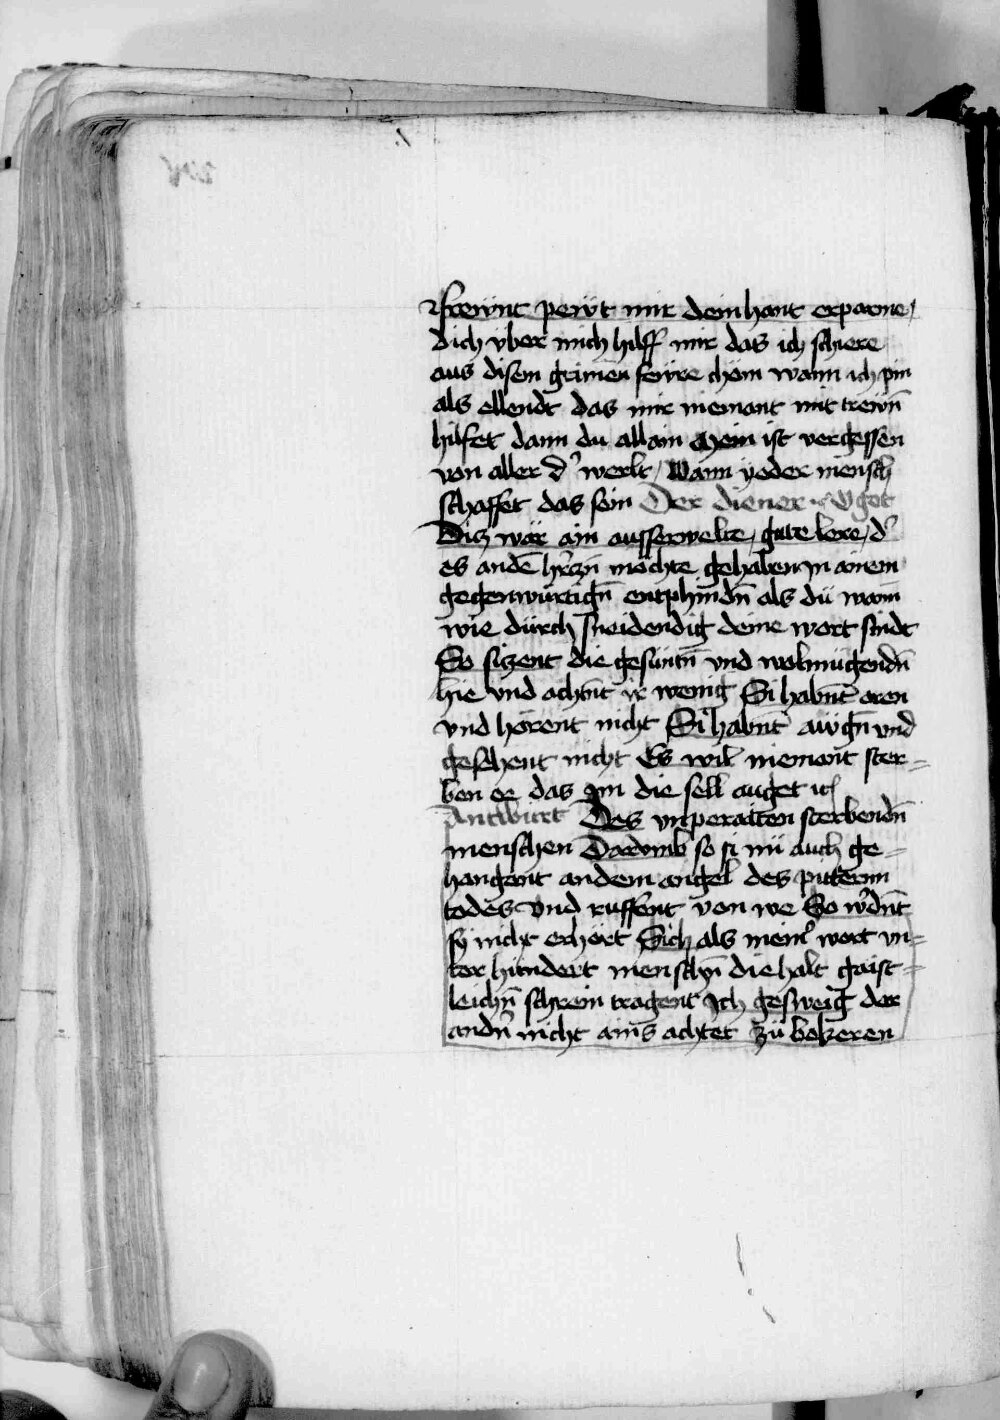 frewnt pewt mir dein hant erparme /
dich vber mich hilff mir das ich schiere
aus disem grimen fewre chöm wann ich pin
als ellendt das mir niemant mit trewn̄
hilfet dann du allain Mein ist vergessen
von aller d' werlt / Wann yeder mensch
schaffet das sein Der diener
Diz wär ain ausserwelte / gute lere / d'
es andē hr̄czn̄ möchte gehaben in ainem
gegenwürtign̄ entphindn̄ als dü wann
wie dürch sneidendig deine wort sindt
So siczent die gesüntn̄ vnd wolmügendn̄
hie vnd achnt̄ ir wenig Si habnt̄ oren
vnd hörent nicht Si habnt̄ awgn̄ vnd
gesehent nicht Es wil niemant ster=
ben ee das Im die sell auget
Antwurt Des vnperaiten sterbendn̄
menschen Darvmb so si nü auch ge=
hangent an dem angel des pittern
todes vnd ruffent von we So w'dnt̄
sy nicht erhört Sich als mein' wort vn=
ter hundert menschn̄ die halt gaist=
leichn̄ schrein tragent Ich gesweig der
andn̄ nicht ains achtet zü bekeren